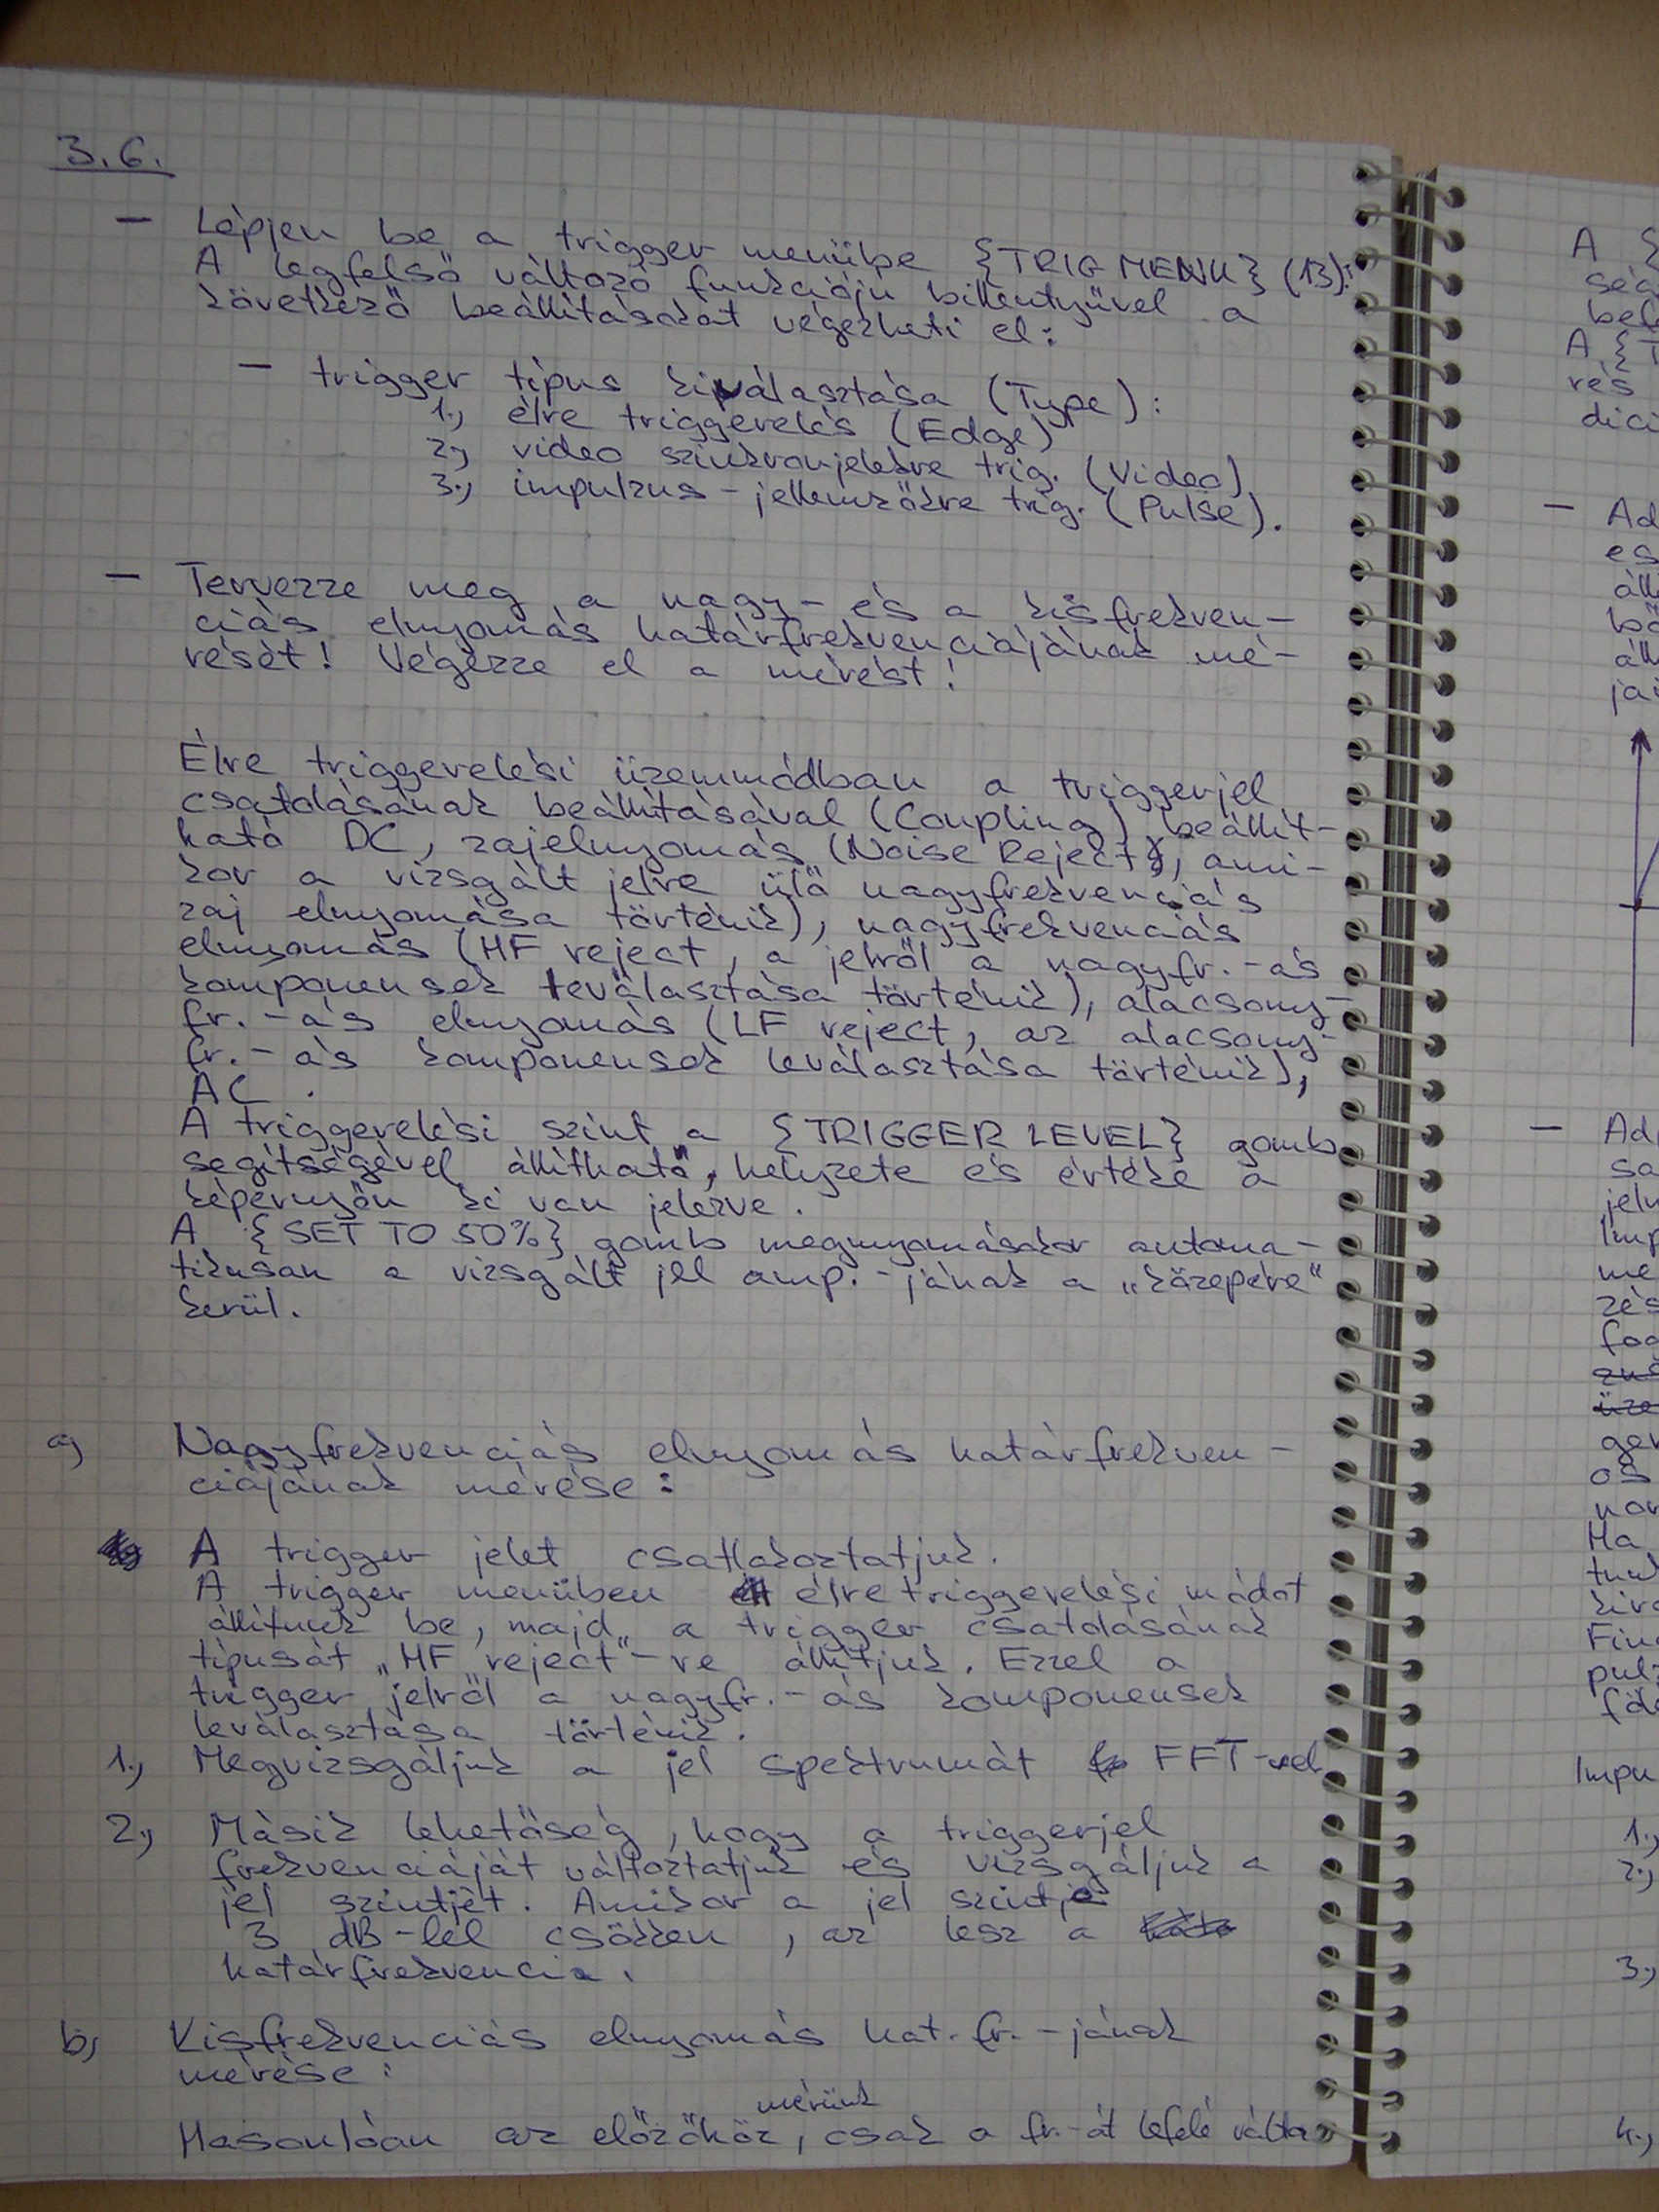 3.6.
– Lépjen be a trigger menübe {TRIG MENU} (13):
A legfelső változó funkciójú billentyűvel a
következő beállításokat végezheti el:
– trigger típus kiválasztása (Type):
1., élre triggerelés (Edge)
2., video szinkronjelekre trig. (Video)
3., impulzus-jellemzőkre trig. (Pulse).
– Tervezze meg a nagy- és a kisfrekven-
ciás elnyomás határfrekvenciájának mé-
rését! Végezze el a mérést!
Élre triggerelési üzemmódban a triggerjel
csatolásának beállításával (Coupling) beállít-
ható DC, zajelnyomás (Noise Reject), ami-
kor a vizsgált jelre ülő nagyfrekvenciás
zaj elnyomása történik), nagyfrekvenciás
elnyomás (HF reject, a jelről a nagyfr.-ás
komponensek leválasztása történik), alacsony-
fr.-ás elnyomás (LF reject, az alacsony-
fr.-ás komponensek leválasztása történik),
AC.
A triggerelési szint a {TRIGGER LEVEL} gomb
segítségével állítható, helyzete és értéke a
képernyőn ki van jelezve.
A {SET TO 50%} gomb megnyomásakor automa-
tikusan a vizsgált jel amp.-jának a „közepére"
kerül.
a, Nagyfrekvenciás elnyomás határfrekven-
ciájának mérése:
A trigger jelet csatlakoztatjuk.
A trigger menüben élre triggerelési módot
állítunk be, majd a trigger csatolásának
típusát „HF reject"-re állítjuk. Ezzel a
trigger jelről a nagyfr.-ás komponensek
leválasztása történik.
1., Megvizsgáljuk a jel spektrumát FFT-vel
2., Másik lehetőség, hogy a triggerjel
frekvenciáját változtatjuk és vizsgáljuk a
jel szintjét. Amikor a jel szintje
3 dB-lel csökken, az lesz a
határfrekvencia.
b, Kisfrekvenciás elnyomás hat.fr.-jának
mérése:
mérünk
Hasonlóan az előzőhöz, csak a fr.-át lefelé
A {
ség
bef
A {T
rés
dici
– Ad
es
áll
bő
áll
jai
– Ad
sa
jeln
Imp
me
zés
fog
ger
os
nor
Ha
tun
kivá
Fin
pulz
föl
Impu
1.,
2.,
3.,
4.,